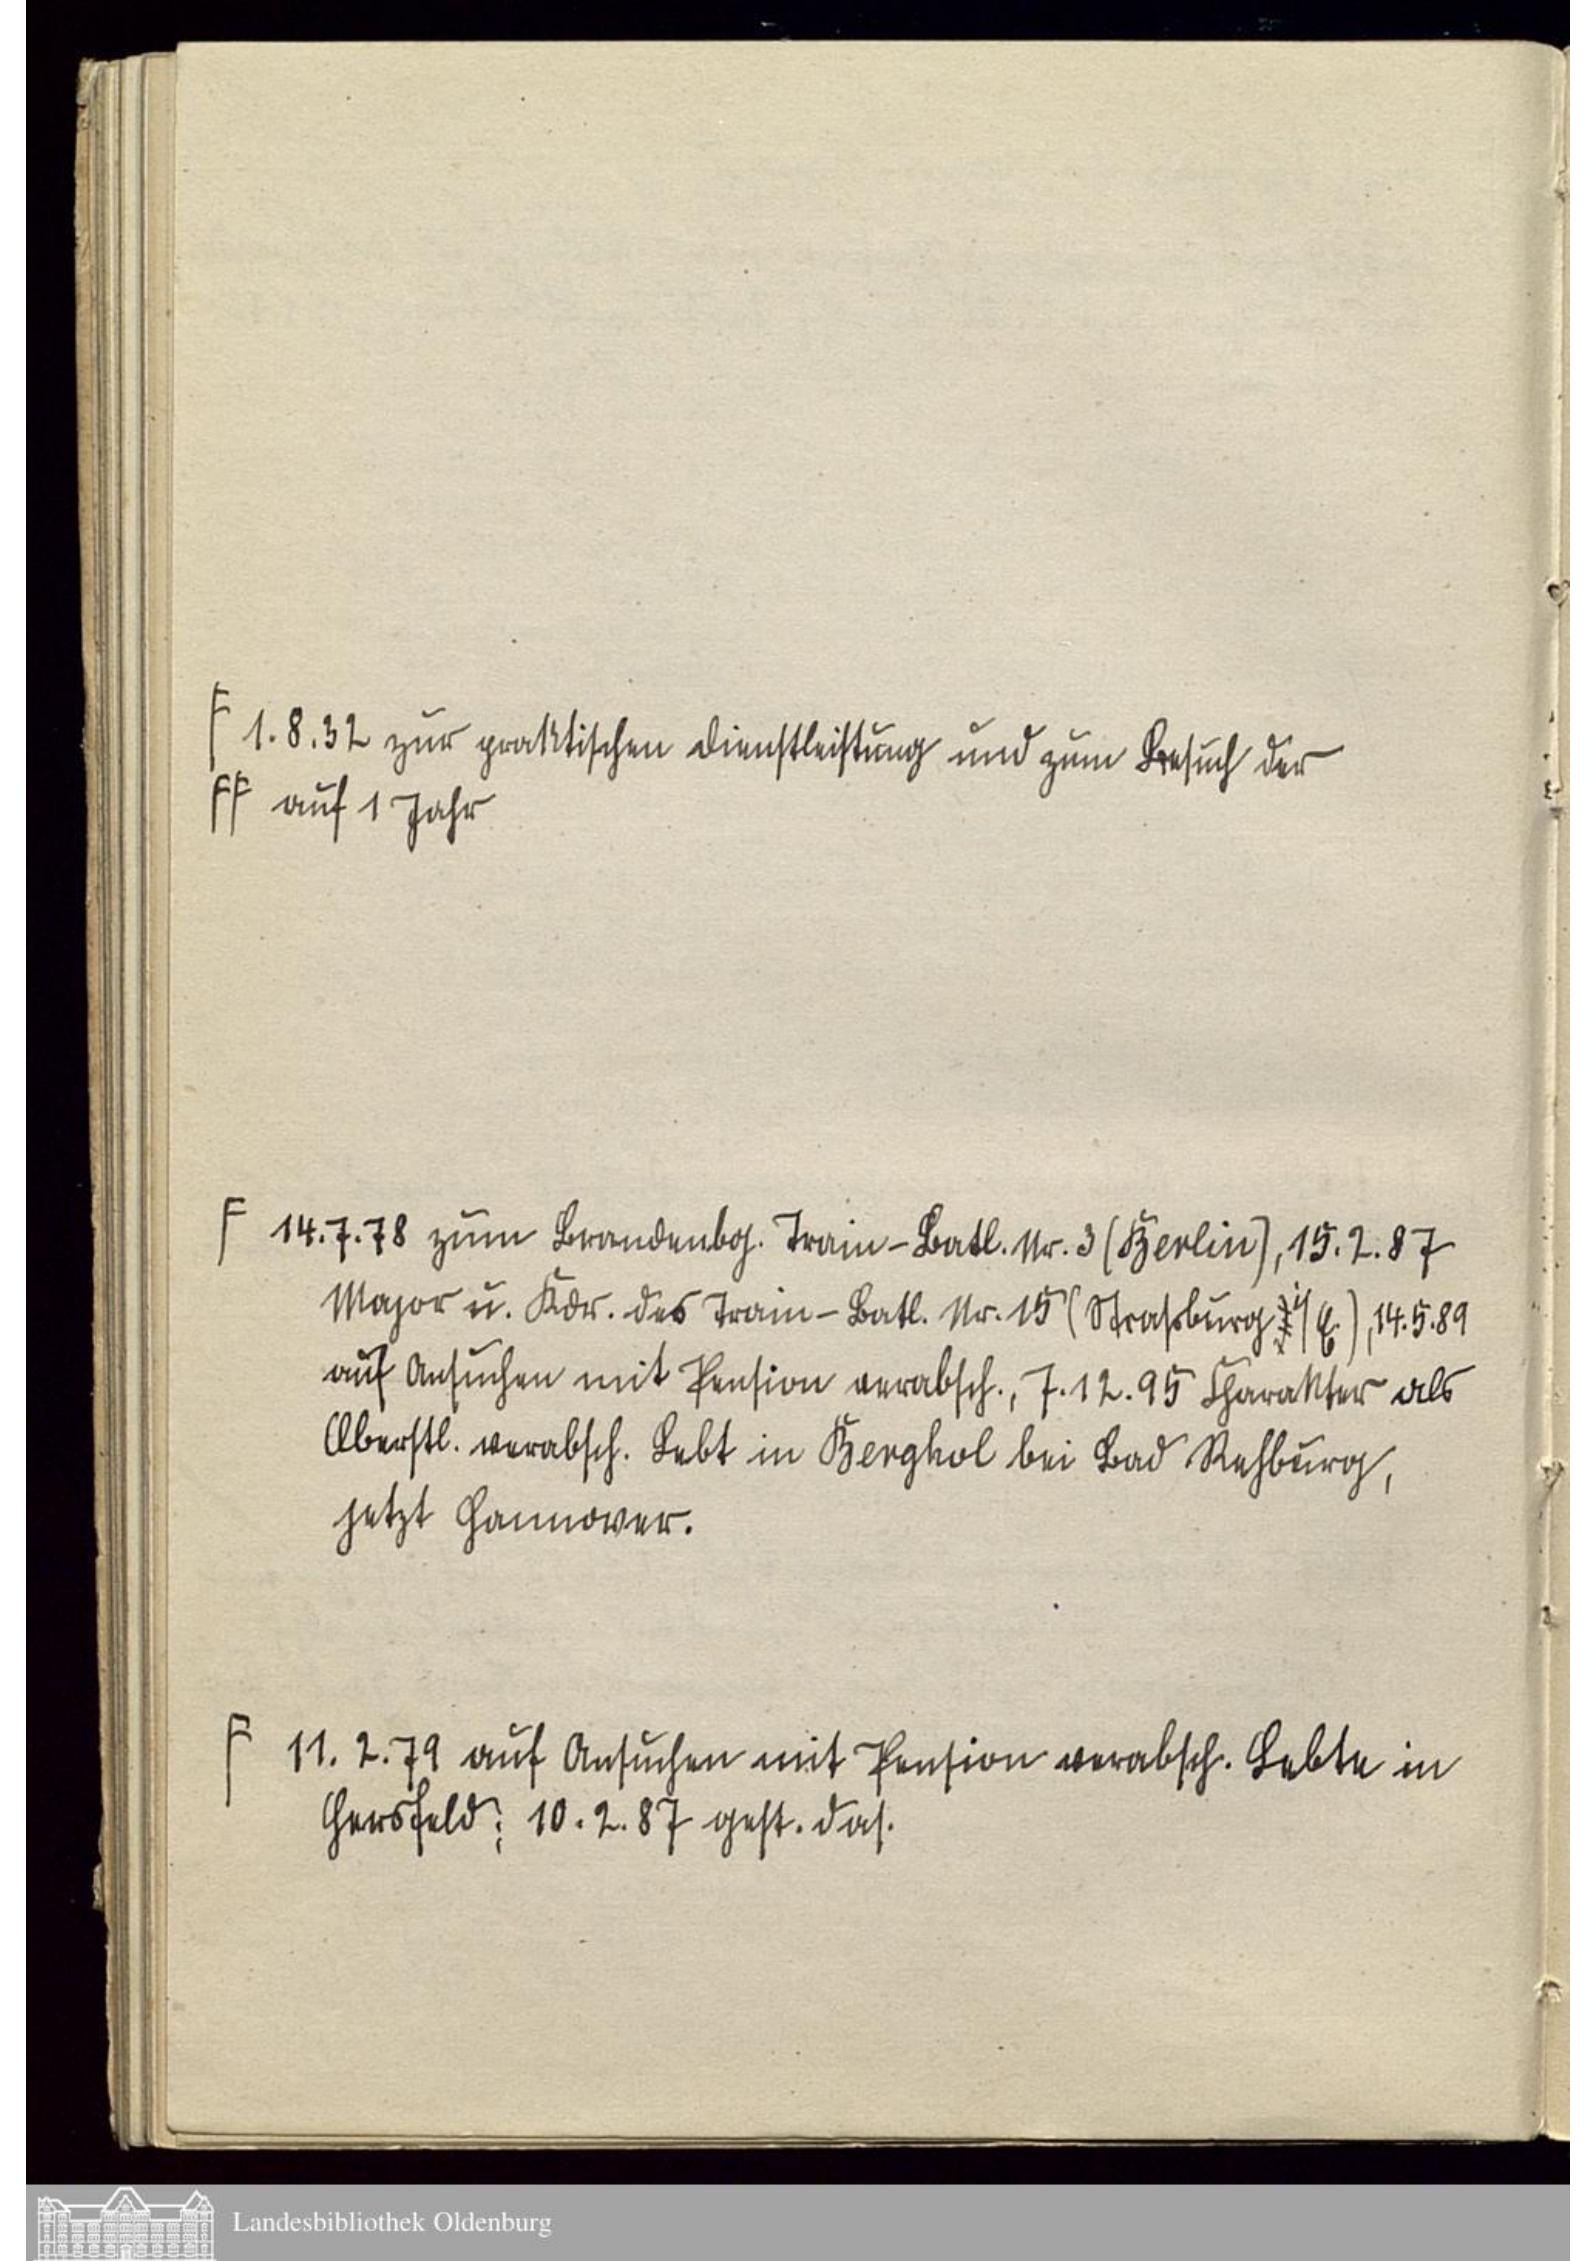 F 1.8.32 zur praktischen Dienstleistung und zum Besuch der
FF auf 1 Jahr
F 14.7.78 zum Brandenbg. Train-Batl. Nr. 3 (Berlin), 15.2.87
Major u. Kdr. des Train-Batl. Nr. 15 (Straßburg i/E.), 14.5.89
auf Ansuchen mit Pension verabsch., 7.12.95 Charakter als
Oberstl. verabsch. Lebt in Berghol bei Bad Rehburg,
jetzt Hannover.
F 11.2.79 auf Ansuchen mit Pension verabsch. Lebte in
Hersfeld; 10.2.87 gest. das.
Landesbibliothek Oldenburg